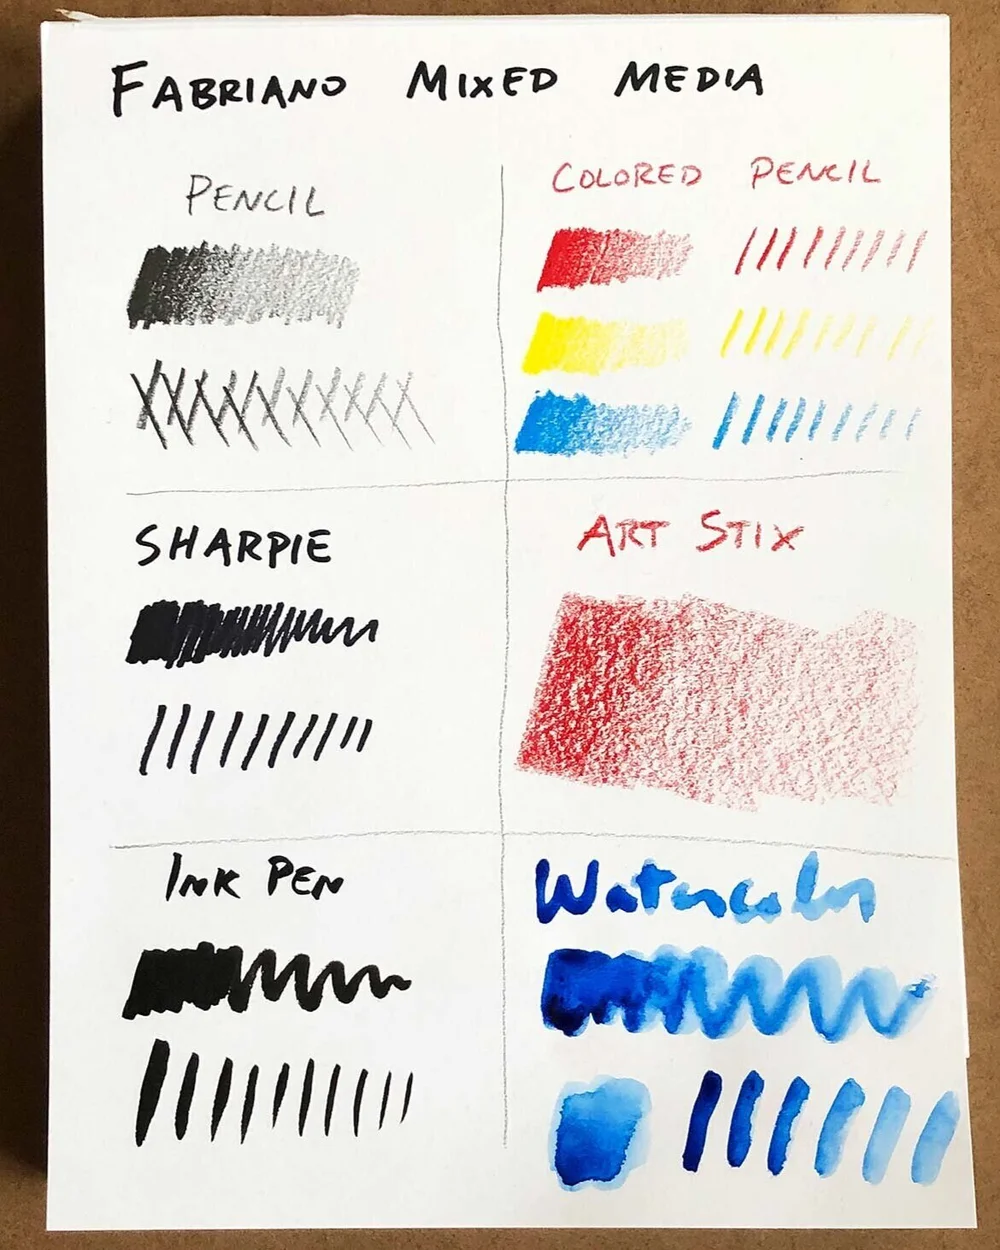 FABRIANO MIXED MEDIA
PENCIL
COLORED PENCIL
SHARPIE
ART STIX
INK PEN
Watercolor